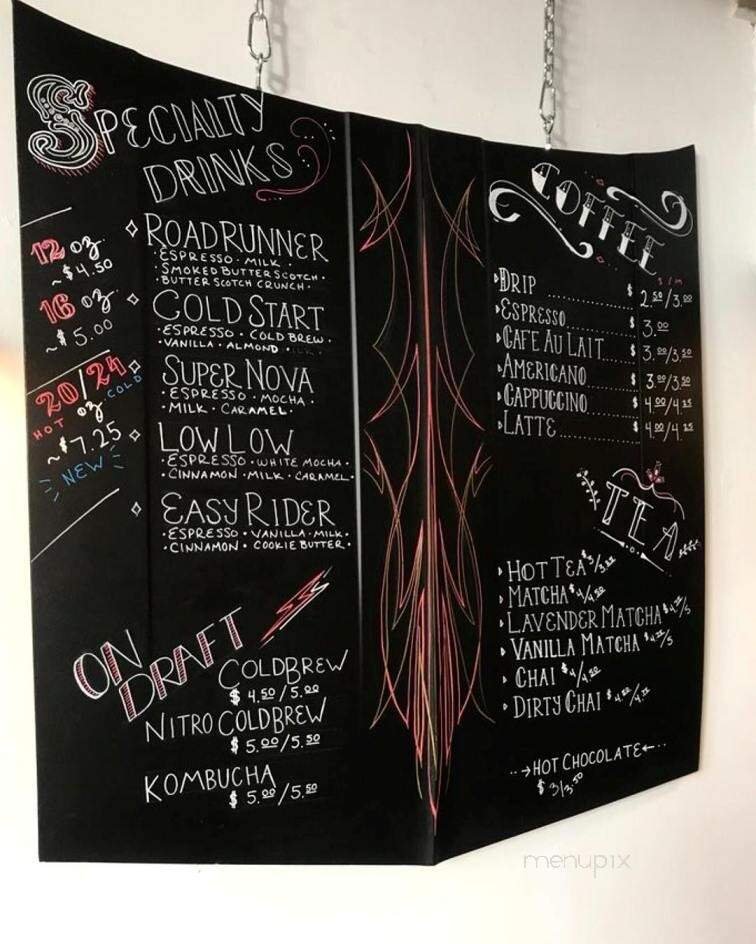 SPECIALTY
DRINKS
12 oz
~$4.50
16 oz
~$5.00
20/24
HOT oz COLD
~$7.25
NEW
ROADRUNNER
ESPRESSO · MILK ·
SMOKED BUTTERSCOTCH ·
BUTTERSCOTCH CRUNCH ·
COLD START
· ESPRESSO · COLD BREW ·
· VANILLA · ALMOND ·
SUPER NOVA
· ESPRESSO · MOCHA ·
· MILK · CARAMEL ·
LOW LOW
· ESPRESSO · WHITE MOCHA ·
CINNAMON · MILK · CARAMEL ·
EASY RIDER
· ESPRESSO · VANILLA · MILK ·
· CINNAMON · COOKIE BUTTER ·
ON
DRAFT
COLDBREW
$4.50/5.00
NITRO COLDBREW
$5.00/5.50
KOMBUCHA
$5.00/5.50
COFFEE
S/M
DRIP $2.50/3.00
ESPRESSO $3.00
CAFE AU LAIT $3.00/3.50
AMERICANO $3.00/3.50
CAPPUCCINO $4.00/4.25
LATTE $4.00/4.25
TEA
HOT TEA
MATCHA $4/4.50
LAVENDER MATCHA
VANILLA MATCHA
CHAI $4/4.50
DIRTY CHAI
··→HOT CHOCOLATE←··
$3/3.50
menupix